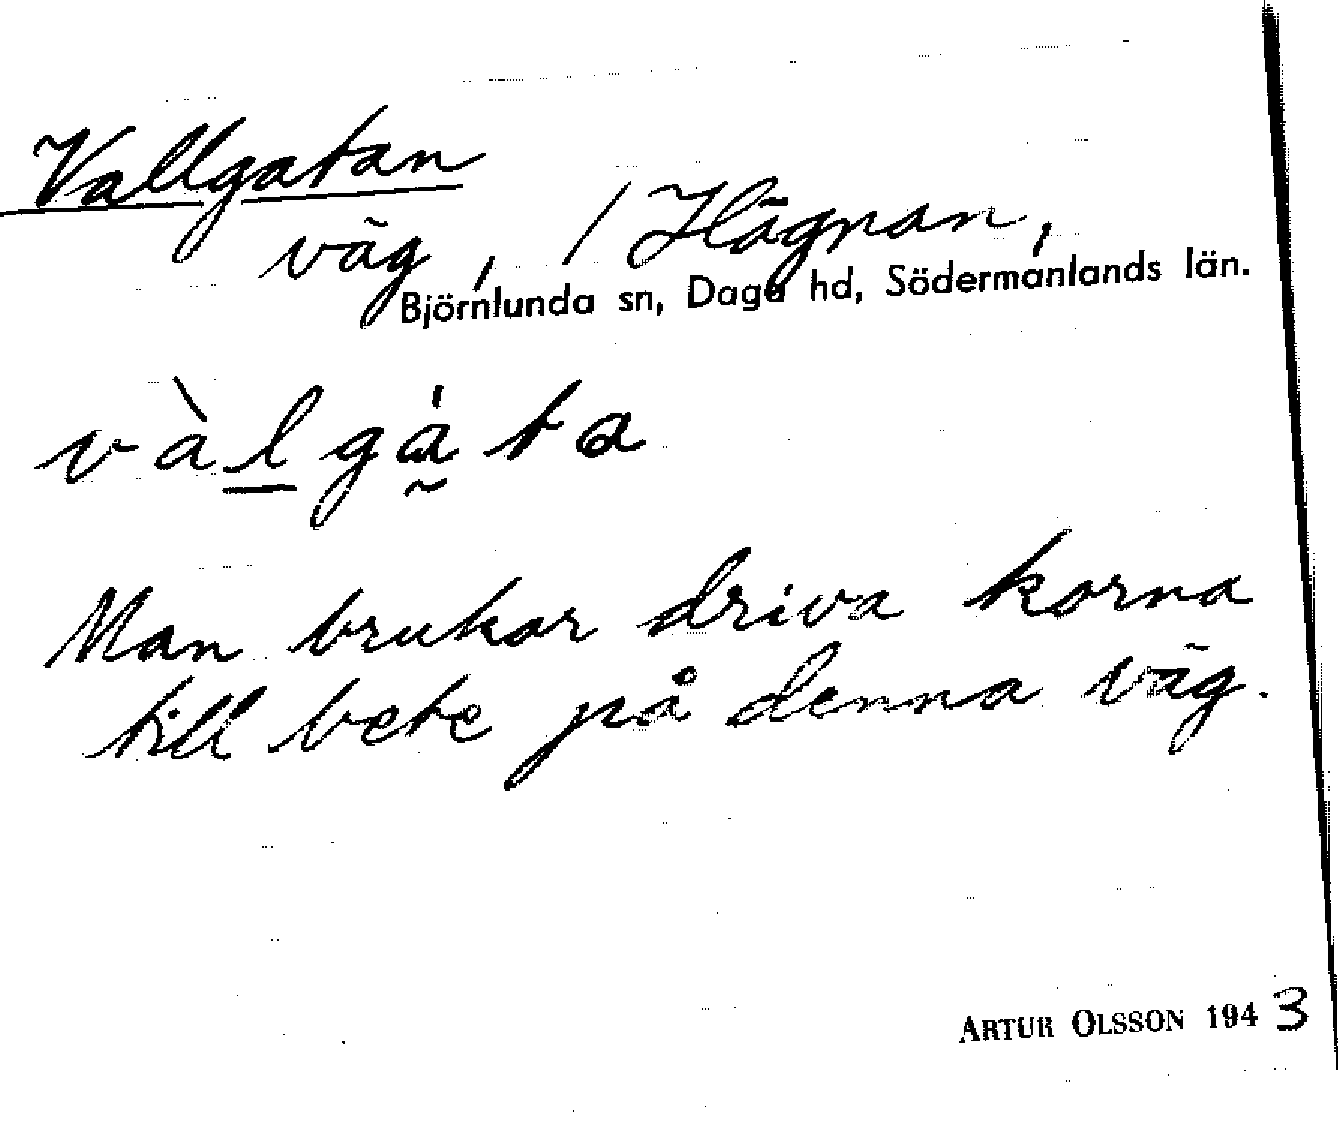 Vallgatan
väg, / Hägnan,
Björnlunda sn, Daga hd, Södermanlands län.
vàl̲gà̰ta
Man brukar driva korna
till bete på denna väg.
ARTUR OLSSON 1943